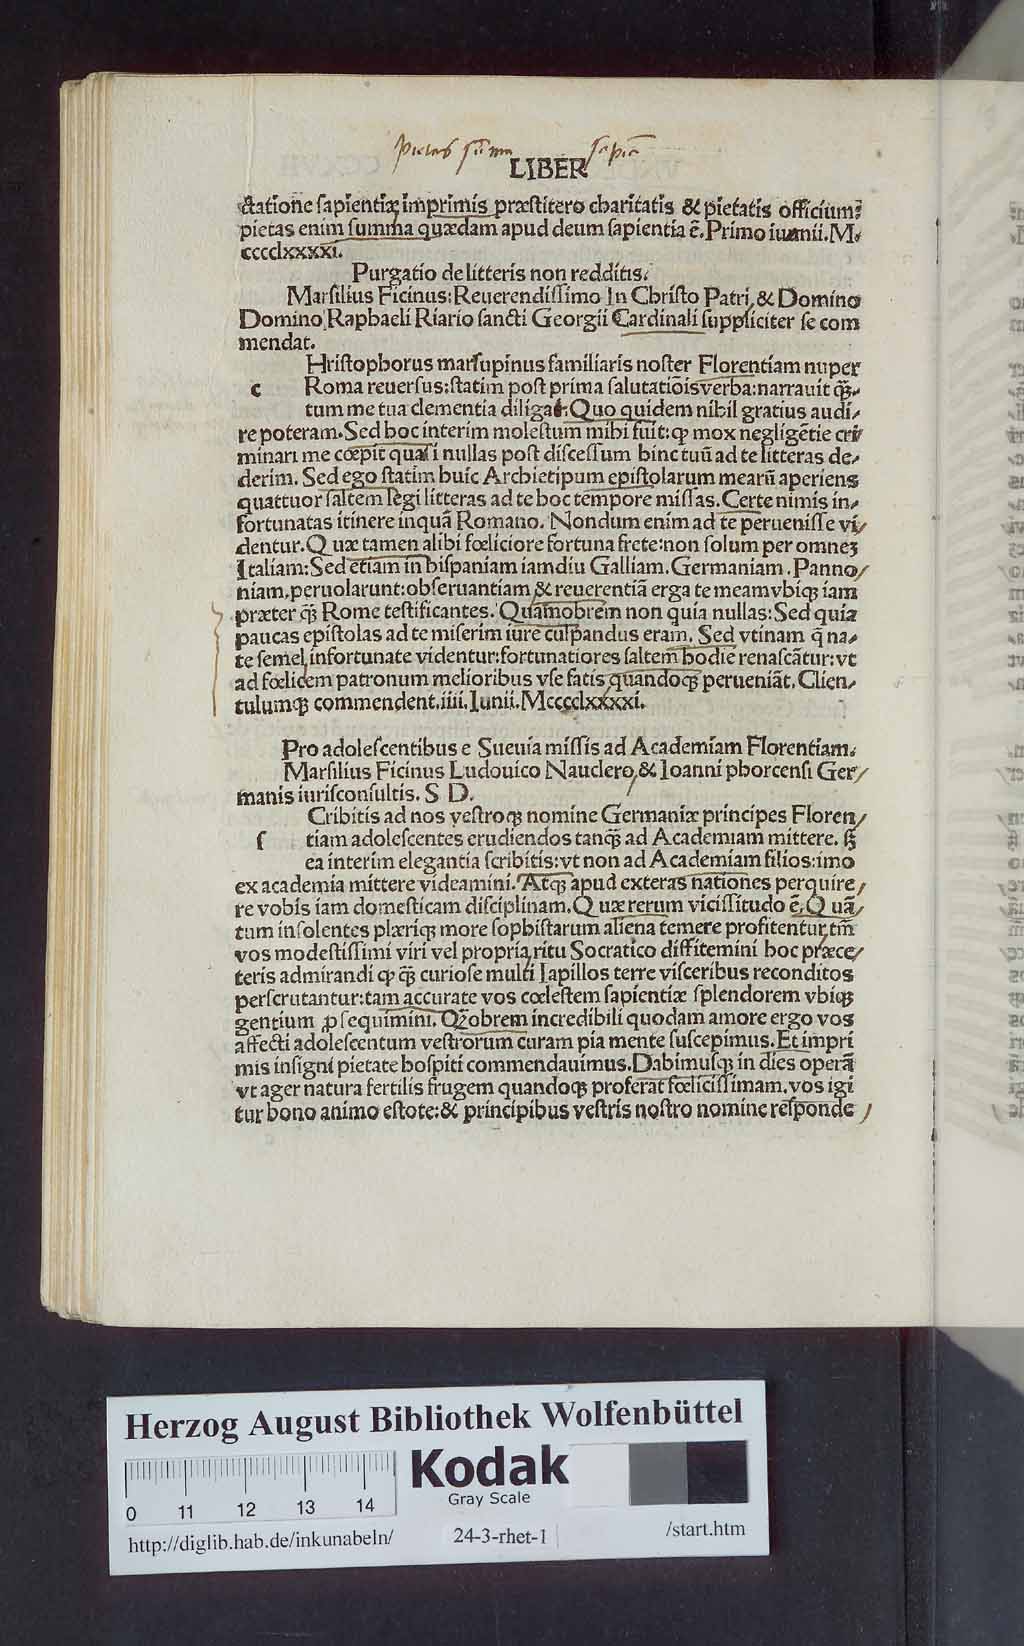 pietas sūma sapīa
LIBER
ctatione sapientiæ imprimis præstitero charitatis & pietatis officium?
pietas enim summa quædam apud deum sapientia ē. Primo iunnii. M.
cccclxxxxi.
Purgatio de litteris non redditis.
Marsilius Ficinus: Reuerendissimo In Christo Patri, & Domino
Domino Raphaeli Riario sancti Georgii Cardinali suppliciter se com
mendat.
Hristophorus marsupinus familiaris noster Florentiam nuper
c Roma reuersus: statim post prima salutatiōis verba: narrauit q̄ꝫ-
tum me tua clementia diligat. Quo quidem nihil gratius audi-
re poteram. Sed hoc interim molestum mihi fuit: ꝙ mox negligētie cri-
minari me cœpit quasi nullas post discessum hinc tuū ad te litteras de-
derim. Sed ego statim huic Archietipum epistolarum mearū aperiens
quattuor saltem legi litteras ad te hoc tempore missas. Certe nimis in-
fortunatas itinere inquā Romano. Nondum enim ad te peruenisse vi/
dentur. Quæ tamen alibi fœliciore fortuna frete: non solum per omneꝫ
Italiam: Sed etiam in hispaniam iamdiu Galliam. Germaniam. Panno/
niam, peruolarunt: obseruantiam & reuerentiā erga te meam vbiqꝫ iam
præter q̄ꝫ Rome testificantes. Quamobrem non quia nullas: Sed quia
paucas epistolas ad te miserim iure culpandus eram. Sed vtinam q̄ na-
te semel infortunate videntur: fortunatiores saltem hodie renascātur: vt
ad fœlicem patronum melioribus vse fatis quandoqꝫ perueniāt. Clien-
tulumqꝫ commendent. iiii. Iunii. Mcccclxxxxi.
Pro adolescentibus e Sueuia missis ad Academiam Florentiam.
Marsilius Ficinus Ludouico Nauclero, & Ioanni phorcensi Ger/
manis iurisconsultis. S D.
Cribitis ad nos vestroqꝫ nomine Germaniæ principes Floren/
s tiam adolescentes erudiendos tanq̄ꝫ ad Academiam mittere. sꝫ
ea interim elegantia scribitis: vt non ad Academiam filios: imo
ex academia mittere videamini. Atqꝫ apud exteras nationes perquire/
re vobis iam domesticam disciplinam. Quæ rerum vicissitudo ē, Quā/
tum insolentes plæriqꝫ more sophistarum aliena temere profitentur, tm̄
vos modestissimi viri vel propria, ritu Socratico diffitemini hoc præce/
teris admirandi ꝙ q̄ꝫ curiose multi lapillos terre visceribus reconditos
perscrutantur: tam accurate vos cœlestem sapientiæ splendorem vbiqꝫ
gentium ꝓsequimini. Qꝫobrem incredibili quodam amore ergo vos
affecti adolescentum vestrorum curam pia mente suscepimus. Et impri
mis insigni pietate hospiti commendauimus. Dabimusqꝫ in dies operā
vt ager natura fertilis frugem quandoqꝫ proferat fœlicissimam. vos igi
tur bono animo estote: & principibus vestris nostro nomine responde/
Herzog August Bibliothek Wolfenbüttel
0 11 12 13 14
Kodak
Gray Scale
http://diglib.hab.de/inkunabeln/ 24-3-rhet-1 /start.htm